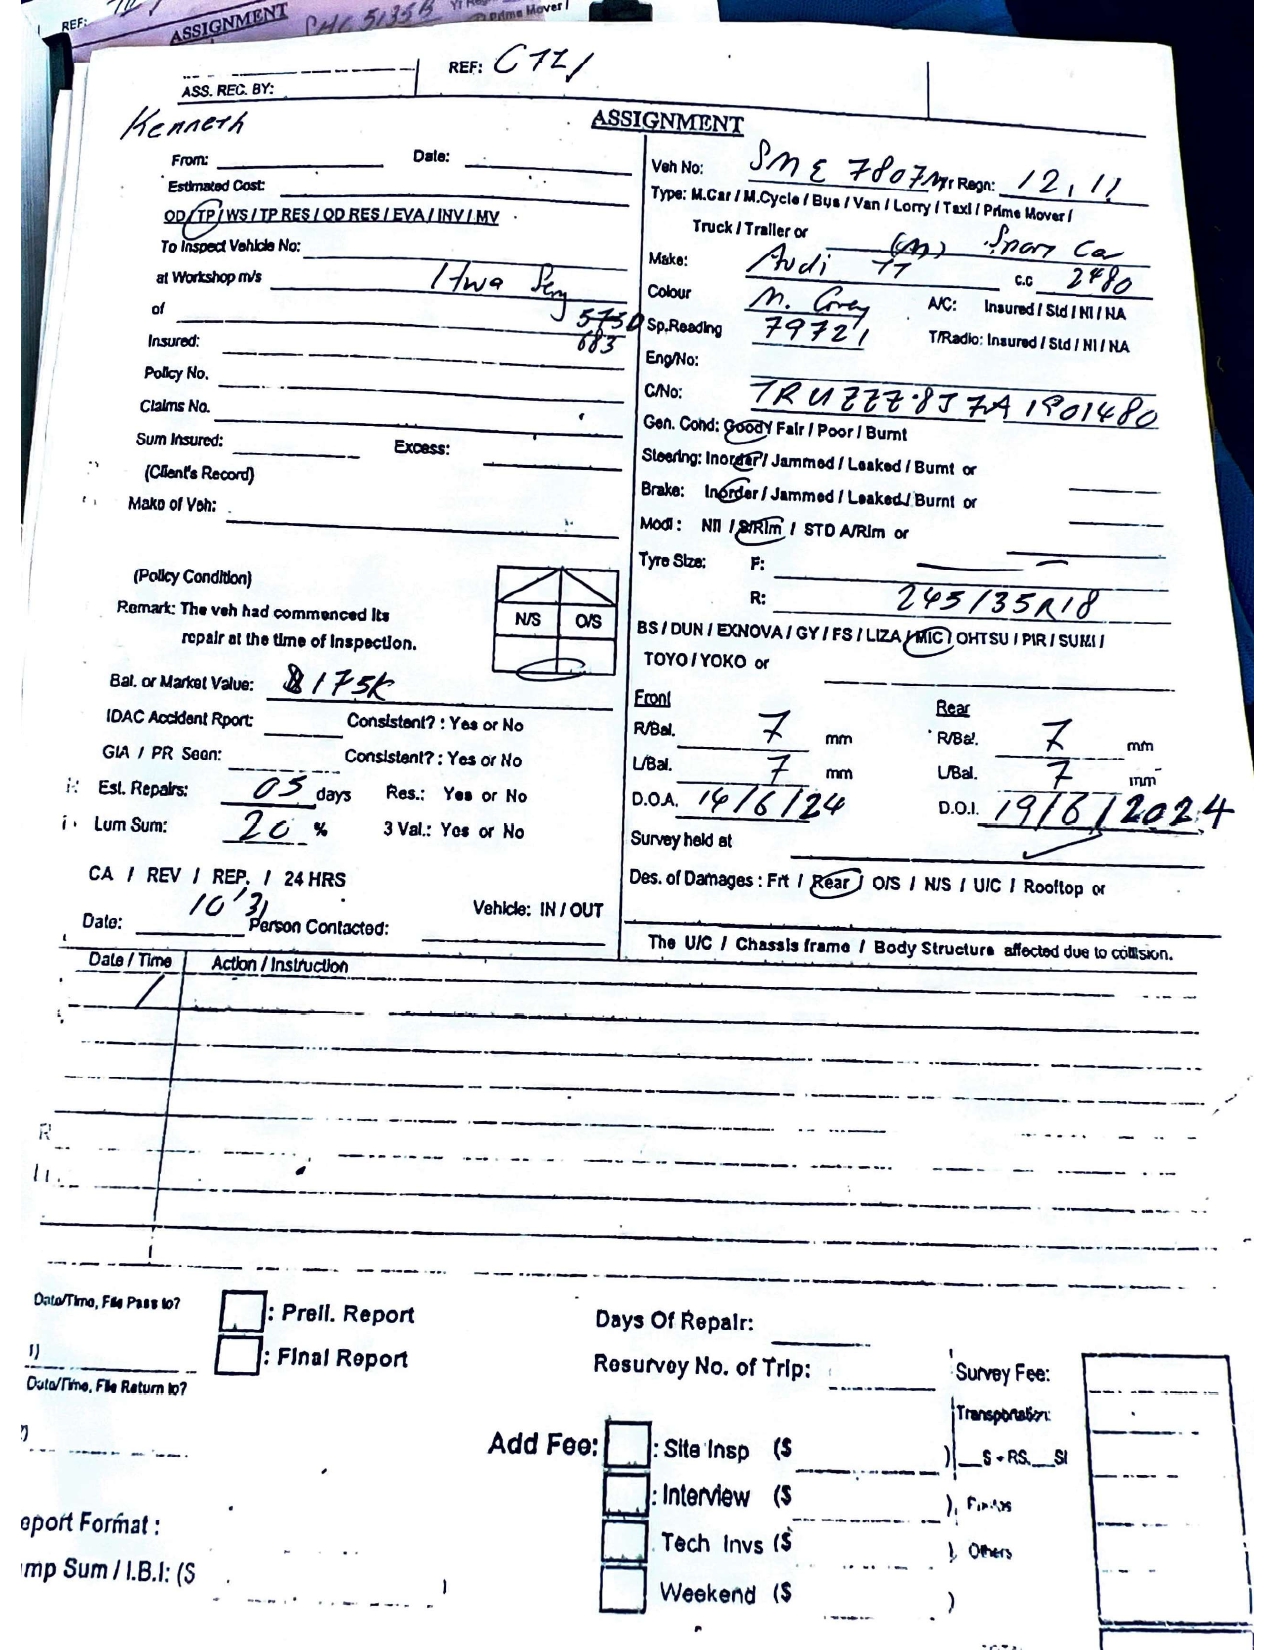 REF:
ASSIGNMENT
SHC5135B
Prime Mover /
REF: CTI/
ASS. REC. BY:
Kenneth
ASSIGNMENT
From: Date:
Estimated Cost:
OD / TP / WS / TP RES / OD RES / EVA / INV / MV
To Inspect Vehicle No:
at Workshop m/s Hwa Seng
of 575D
683
Insured:
Policy No.
Claims No.
Sum Insured: Excess:
(Client's Record)
Make of Veh:
(Policy Condition)
Remark: The veh had commenced its
repair at the time of Inspection.
N/S O/S
Bal. or Market Value: $175K
IDAC Accident Rport: Consistent? : Yes or No
GIA / PR Seen: Consistent? : Yes or No
Est. Repairs: 05 days Res.: Yes or No
Lum Sum: 20 % 3 Val.: Yes or No
CA / REV / REP. / 24 HRS
10'31
Vehicle: IN / OUT
Date: Person Contacted:
Veh No: SME 7807M Yr Regn: 12, 11
Type: M.Car / M.Cycle / Bus / Van / Lorry / Taxi / Prime Mover /
Truck / Trailer or (M) Sport Car
Make: Audi TT c.c 2480
Colour M. Grey A/C: Insured / Std / NI / NA
Sp.Reading 79721 T/Radio: Insured / Std / NI / NA
Eng/No:
C/No: TRUZZZ8J7A1901480
Gen. Cond: Good / Fair / Poor / Burnt
Steering: Inorder / Jammed / Leaked / Burnt or
Brake: Inorder / Jammed / Leaked / Burnt or
Modi : Nil / S/Rim / STD A/Rim or
Tyre Size: F:
R: 245/35R18
BS / DUN / EXNOVA / GY / FS / LIZA / MIC / OHTSU / PIR / SUMI /
TOYO / YOKO or
Front Rear
R/Bal. 7 mm R/Bal. 7 mm
L/Bal. 7 mm L/Bal. 7 mm
D.O.A. 14/6/24 D.O.I. 19/6/2024
Survey held at
Des. of Damages : Frt / Rear / O/S / N/S / U/C / Rooftop or
The U/C / Chassis frame / Body Structure affected due to collision.
Date / Time Action / Instruction
Date/Time, File Pass to?
: Prell. Report
: Final Report
1)
Date/Time, File Return to?
Days Of Repair:
Resurvey No. of Trip:
Survey Fee:
Transportation:
Add Fee: : Site Insp ($ ) __S + RS.__SI
: Interview ($ ),
Tech Invs ($ ), Others
Weekend ($ )
eport Format :
mp Sum / I.B.I: ($ )